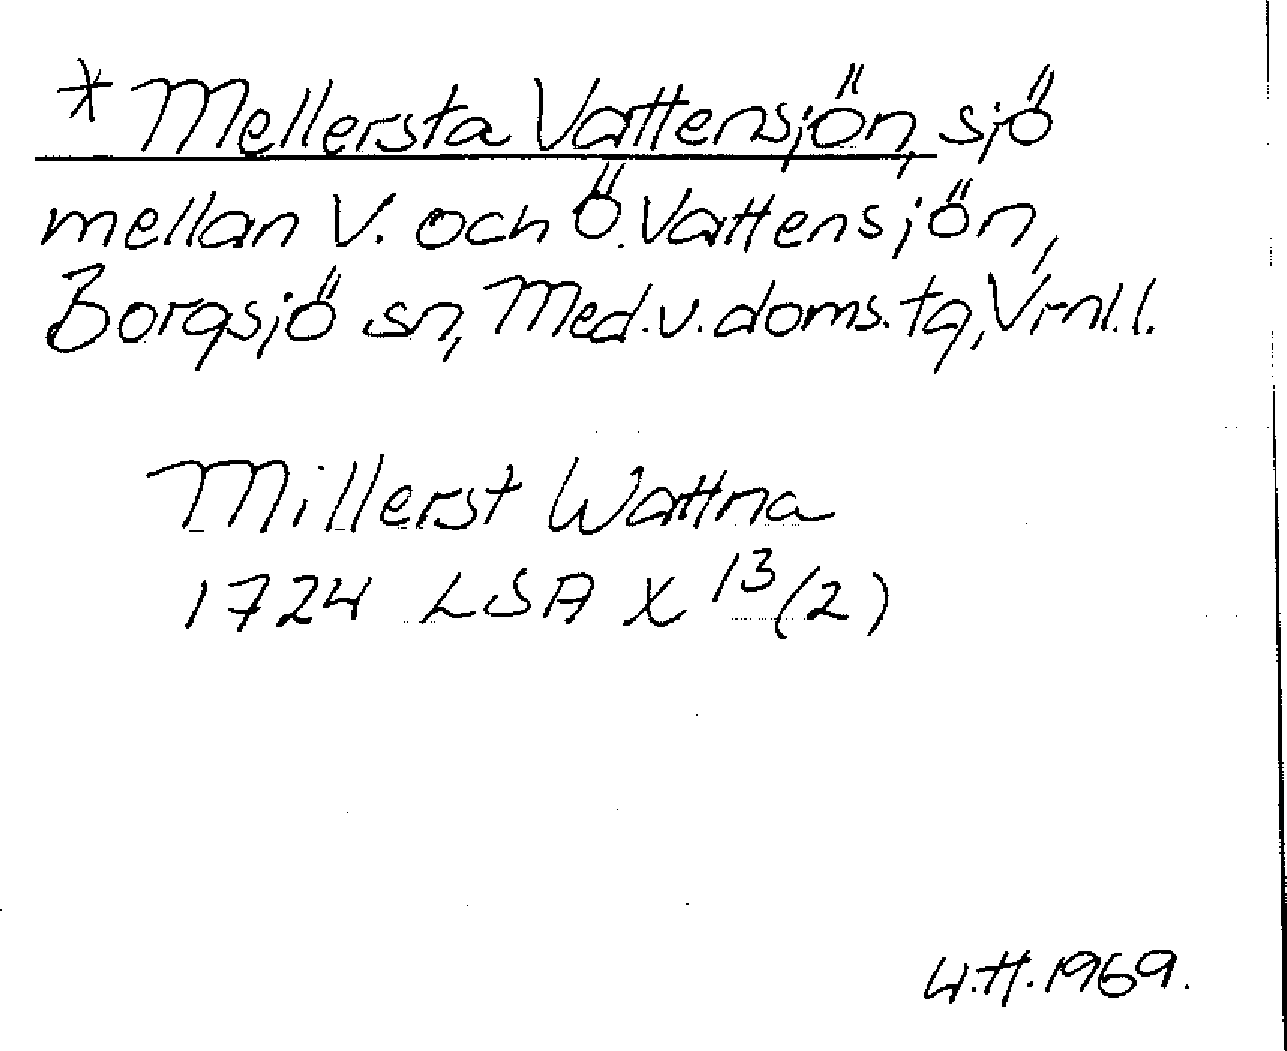 * Mellersta Vattensjön, sjö
mellan V. och Ö. Vattensjön,
Borgsjö sn, Med.v.doms.tg, Vrnl.l.
Millerst Wattna
1724 LSA X 13/(2)
W.H. 1969.